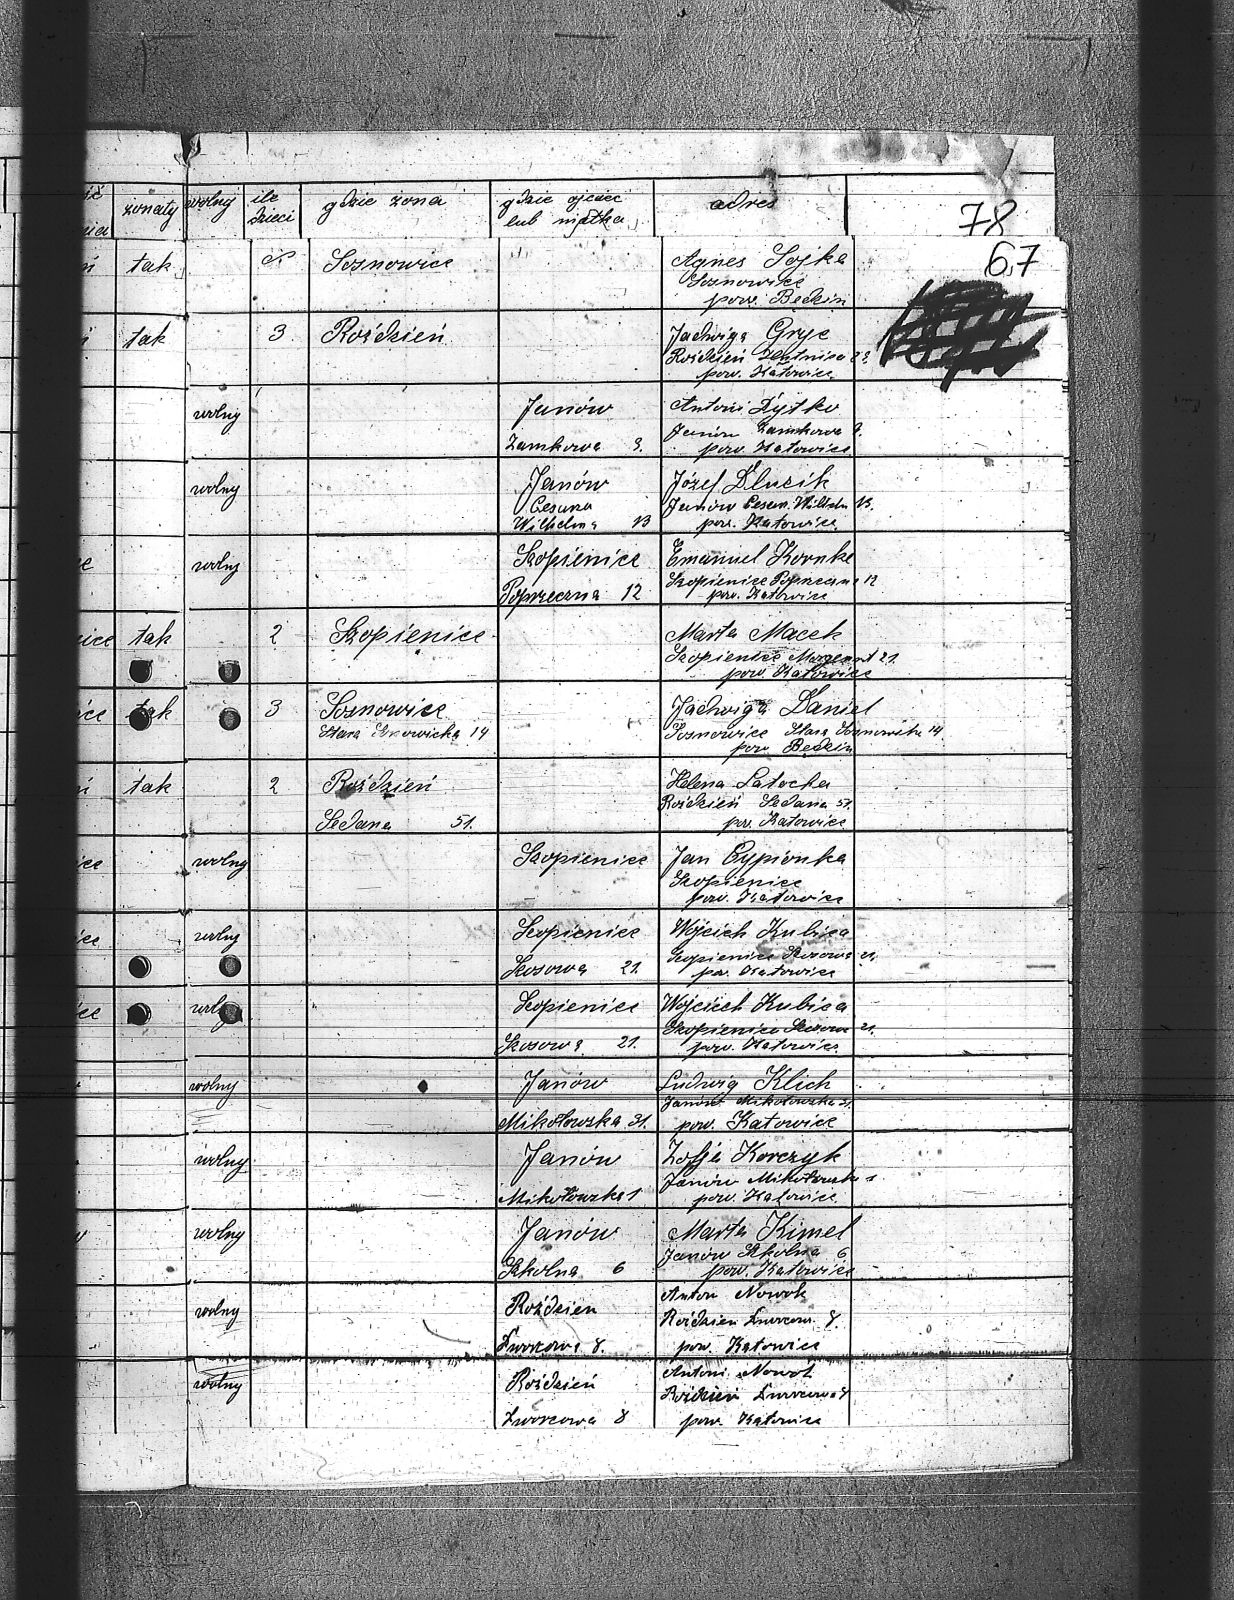 żonaty wolny ile dzieci gdzie żona gdzie ojciec lub matka adres
78
67
tak Sosnowice Agnes Sojka
Sosnowice
pow. Będzin
tak 3 Roździeń Jadwiga Gryc
Roździeń
pow. Katowice
wolny Janów Antoni Dytko
Zamkowa 9. Janów Zamkowa 9.
pow. Katowice
wolny Janów Józef Dlucik
Cesarza Janów Cesarz. Wilhelm 13.
Wilhelma 13 pow. Katowice
wolny Szopienice Emanuel Kornke
Poprzeczna 12 Szopienice Poprzeczna 12
pow. Katowice
ice tak 2 Szopienice Marta Macek
Szopienice 21.
pow. Katowice
ice tak 3 Sosnowice Jadwiga Daniel
Stara Sosnowicka 14 Sosnowice Stara Sosnowicka 14
pow. Będzin
tak 2 Roździeń Helena Latocha
Roździeń Sedana 51.
Sedana 51. pow. Katowice
ice wolny Szopienice Jan Cypionka
Szopienice
pow. Katowice
ice wolny Szopienice Wojciech Kubica
Szosowa 21. Szopienice Szosowa 21.
pow. Katowice
ice wolny Szopienice Wojciech Kubica
Szosowa 21. Szopienice Szosowa 21.
pow. Katowice
wolny Janów Ludwig Klich
Janów Mikołowska 31.
Mikołowska 31. pow. Katowice
wolny Janów Zofja Korczyk
Janów Mikołowska 1
Mikołowska 1 pow. Katowice
wolny Janów Marta Kimel
Janów Szkolna 6
Szkolna 6 pow. Katowice
wolny Roździen Anton Nowok
Roździen Dworcowa 8.
Dworcowa 8. pow. Katowice
wolny Roździeń Antoni Nowok
Roździeń Dworcowa 8
Dworcowa 8 pow. Katowice